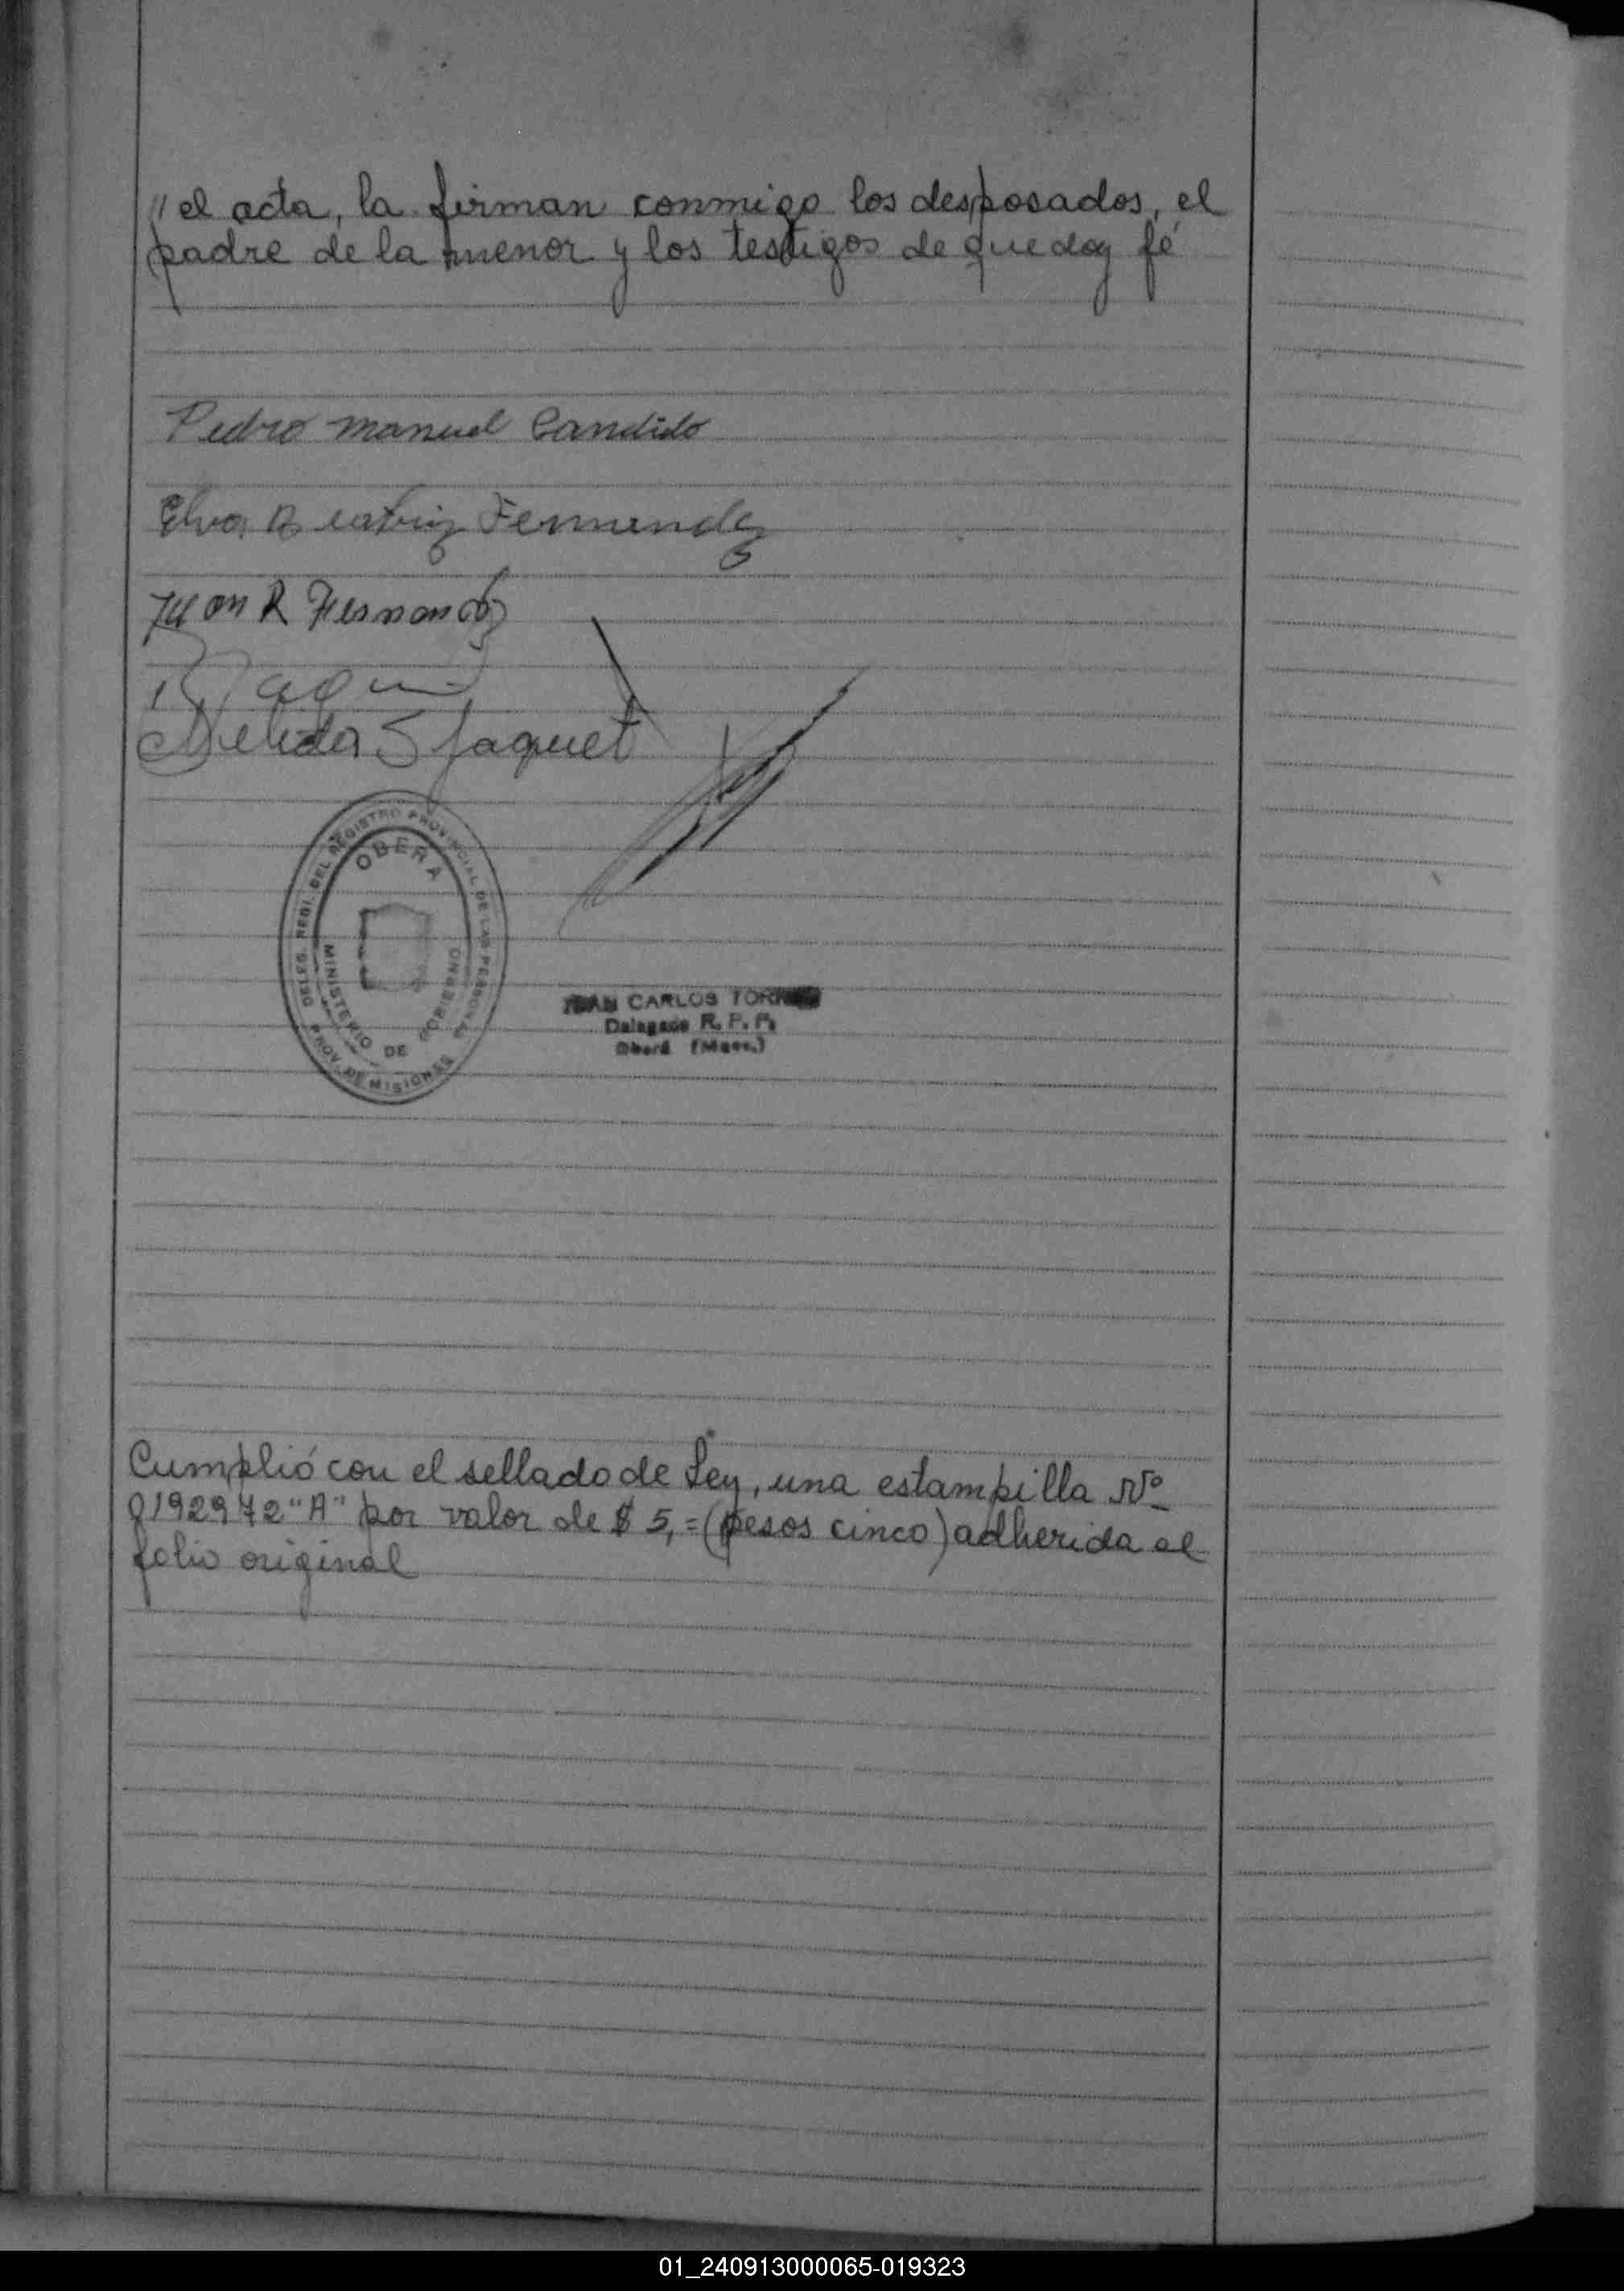 " el acta, la firman conmigo los desposados, el
padre de la menor y los testigos de que doy fé
Pedro Manuel Candido
Elva Beatriz Fernandez
Juan R Fernandez
Nelida S Jaquet
DELEG. REGI. DEL REGISTRO PROVINCIAL DE LAS PERSONAS
OBERA
MINISTERIO DE GOBIERNO
PROV. DE MISIONES
JUAN CARLOS TORRES
Delegado R. P. P.
Oberá (Mnes.)
Cumplió con el sellado de Ley, una estampilla Nº
0192972 "A" por valor de $ 5,= (pesos cinco) adherida al
folio original
01_240913000065-019323